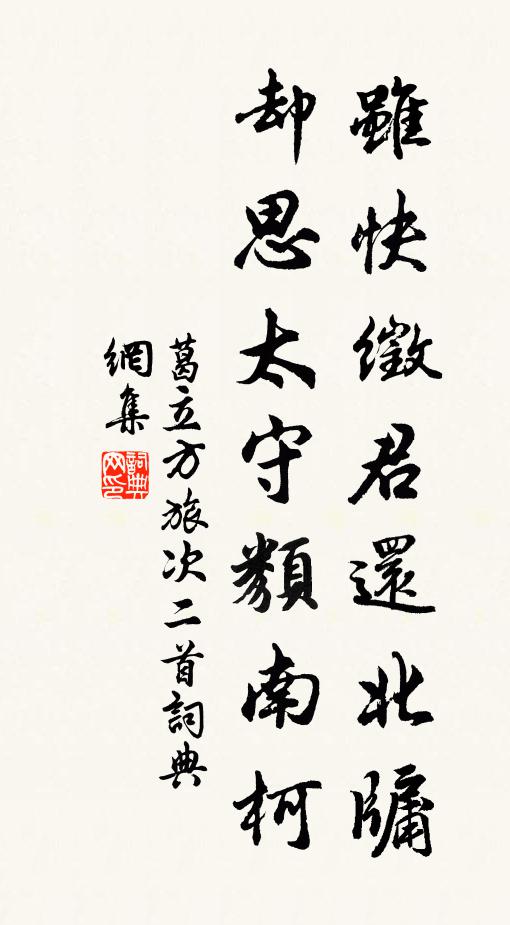 雖快徵君還北牖
却思太守類南柯
葛立方旅次二首詞典
網集
詞典
网印